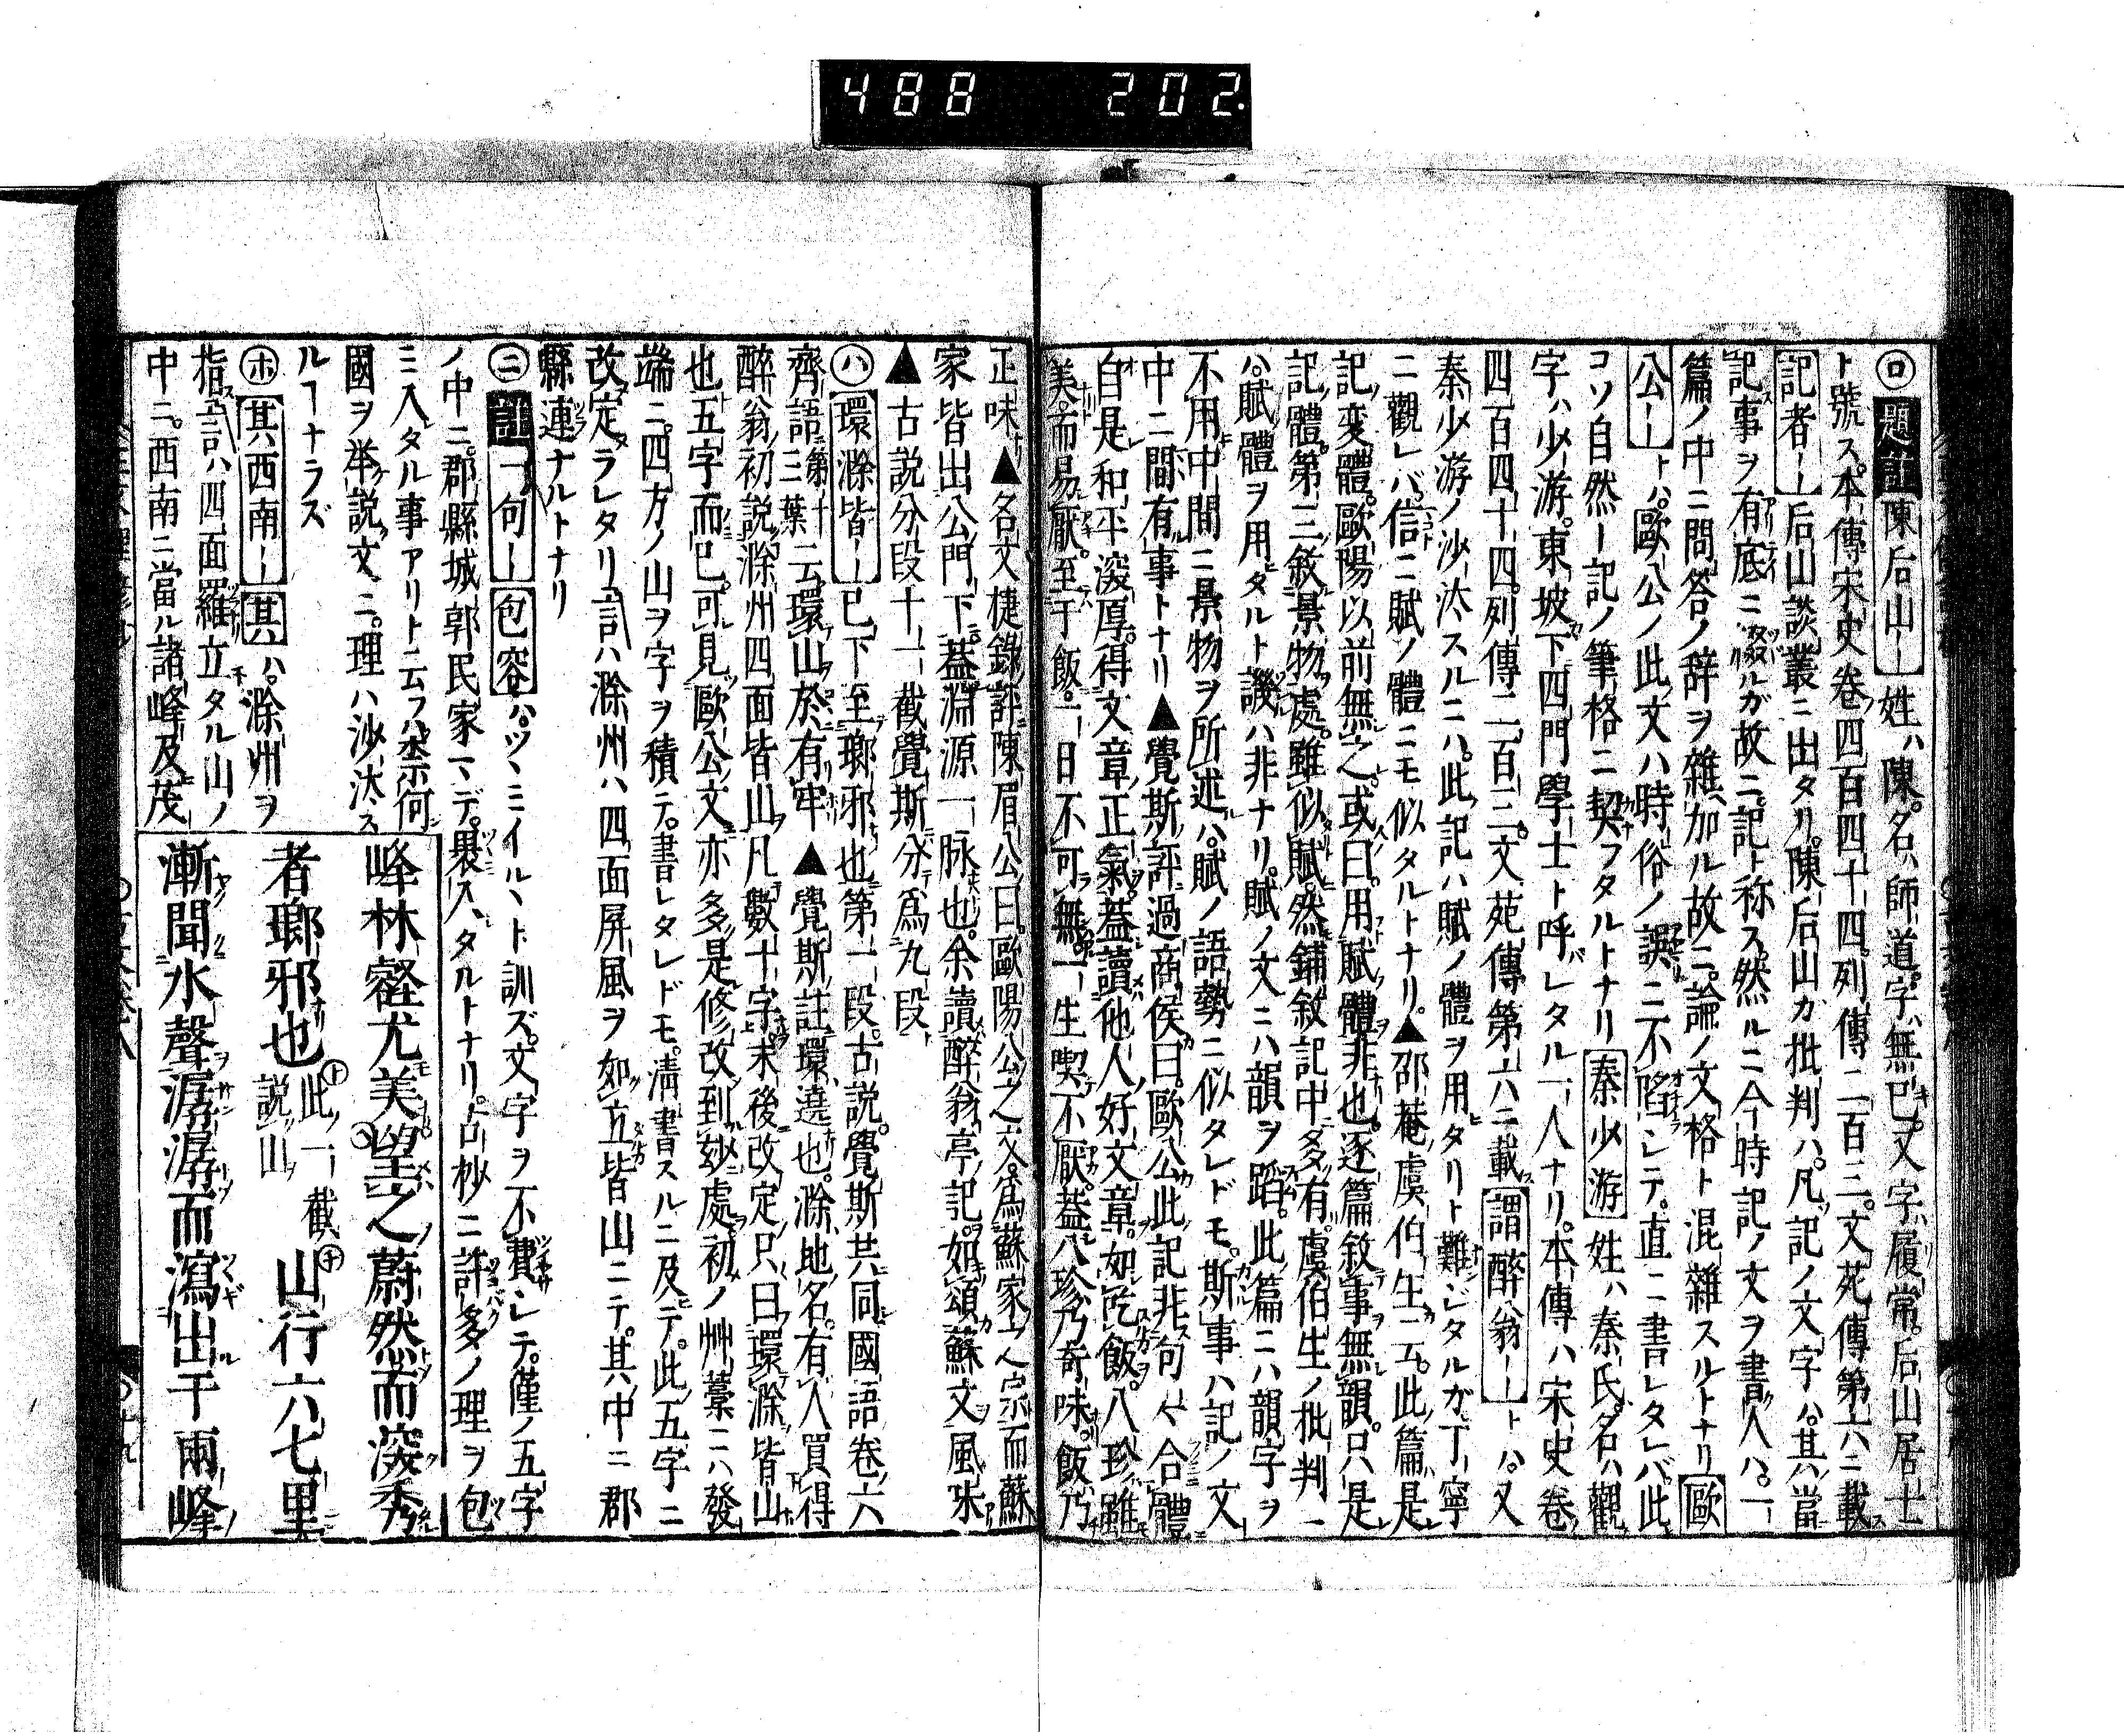 488 202.
㋺題註陳后山ー姓ハ陳名ハ師道字ハ無已又字ハ履常后山居士
ト號ス本傳宋史卷四百四十四列傳二百三文苑傳第六ニ載ス
記者ー后山談叢ニ出タリ陳后山ガ批判ハ凡記ノ文字ハ其當
記事ヲ有底ニ綴ルガ故ニ記ト称ス然ルニ今時記ノ文ヲ書人ハ一
篇ノ中ニ問答ノ辞ヲ雜加ル故ニ論ノ文格ト混雜スルトナリ歐
公ートハ歐公ノ此文ハ時俗ノ誤ニ不陷シテ直ニ書レタレバ此
コソ自然ー記ノ筆格ニ契フタルトナリ秦少游姓ハ秦氏名ハ觀
字ハ少游東坡下四門學士ト呼バレタル一人ナリ本傳ハ宋史卷
四百四十四列傳二百三文苑傳第六ニ載謂醉翁ートハ又
秦少游ノ沙汰スルニハ此記ハ賦ノ體ヲ用タリト難ジタルガ丁寧
ニ觀レバ信ニ賦ノ體ニモ似タルトナリ▲邵菴虞伯生云此篇是
記変體歐陽以前無之或曰用賦體非也逐篇敘事無韻只是
記體第三敘景物處雖似賦然鋪敘記中多有虞伯生ノ批判ー
ハ賦體ヲ用タルト譏ハ非ナリ賦ノ文ニハ韻ヲ蹈此篇ニハ韻字ヲ
不用中間ニ景物ヲ所述ハ賦ノ語勢ニ似タレドモ斯事ハ記ノ文
中ニ間有事トナリ▲覺斯評過商侯曰歐公此記非句々合體
自是和平深厚得文章正氣蓋讀他人好文章如吃飯八珍雖
美而易厭至于飯一日不可無一生喫不厭蓋八珍乃奇味飯乃
正味▲名文捷錄評陳眉公曰歐陽公之文爲蘇家一人宗而蘇
家皆出公門下蓋淵源一脉也余讀醉翁亭記如頌蘇文風味
▲古説分段十一截覺斯分爲九段
㋩環滁皆ー已下至瑯邪也第一段古説覺斯共同國語卷六
齊語第十三葉云環山於有牢▲覺斯註環遶也滁地名有人買得
醉翁初説滁州四面皆山凡數十字末後改定只曰環滁皆山
也五字而已可見歐公文亦多是修改到妙處初ノ艸藁ニハ發
端ニ四方ノ山ヲ字ヲ積テ書レタレドモ清書スルニ及テ此五字ニ
改定ラレタリ言ハ滁州ハ四面屏風ヲ如立皆山ニテ其中ニ郡
縣連ナルトナリ
㋥註一句ー包容ハツヽミイルヽト訓ズ文字ヲ不費シテ僅ノ五字
ノ中ニ郡縣城郭民家マデ褁入タルトナリ古杪ニ許多ノ理ヲ包
ミ入タル事アリト云フハ柰何
國ヲ举説文ニ理ハ沙汰ス
ルヿナラズ
㋭其西南ー其ハ滁州ヲ
指言ハ四面羅立タル山ノ
中ニ西南ニ當ル諸峰及茂
峰林壑尤美望之蔚然而深秀
者瑯邪也㋣此一截説山㋠山行六七里
漸聞水聲潺潺而瀉出于兩峰